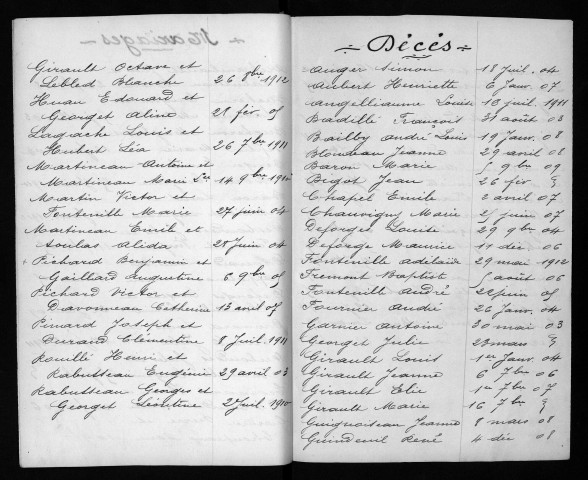 Mariages
Girault Octave et
Lebled Blanche 26 8bre 1912
Huan Edouard et
Georget Aline 28 fév. 05
Lagache Louis et
Hubert Léa 26 7bre 1911
Martineau Antoine et
Martineau Marie 14 9bre 1910
Martin Victor et
Fonteville Marie 27 juin 04
Martineau Emile et
Soulas Alida 28 juin 04
Pichard Benjamin et
Gaillard Augustine 6 9bre 05
Pichard Victor et
Davonneau Catherine 13 avril 07
Pinard Joseph et
Durand Clémentine 8 Juil. 1911
Rouillé Henri et
Rabutteau Eugénie 29 avril 03
Rabutteau Georges et
Georget Léontine 2 Juil. 1910
Décés
Auger Simon 18 Juil. 04
Aubert Henriette 6 Janv. 07
Angelliaume Louise 10 juil. 1911
Badillé François 31 août 03
Bailby André Louis 19 Janv. 08
Blondeau Jeanne 29 avril 08
Baron Marie 5 9bre 09
Begot Jean 26 fév
Chapel Emile 2 avril 07
Chauvigny Marie 25 juin 07
Deforges Louise 29 9bre 04
Deforge Maurice 11 déc 06
Fonteville Adélaïde 29 mai 1912
Fremont Baptist août 06
Fonteville André 22 juin 05
Fournier André 26 Janv. 04
Garnier Antoine 30 mai 03
Georget Julie 23 mars
Girault Louis 1er Janv. 04
Girault Jeanne 6 7bre 06
Girault Elie 1er 7bre 07
Girault Marie 16 7bre
Guignoiseau Jeanne 8 mars 08
Guindeuil René 4 déc 08